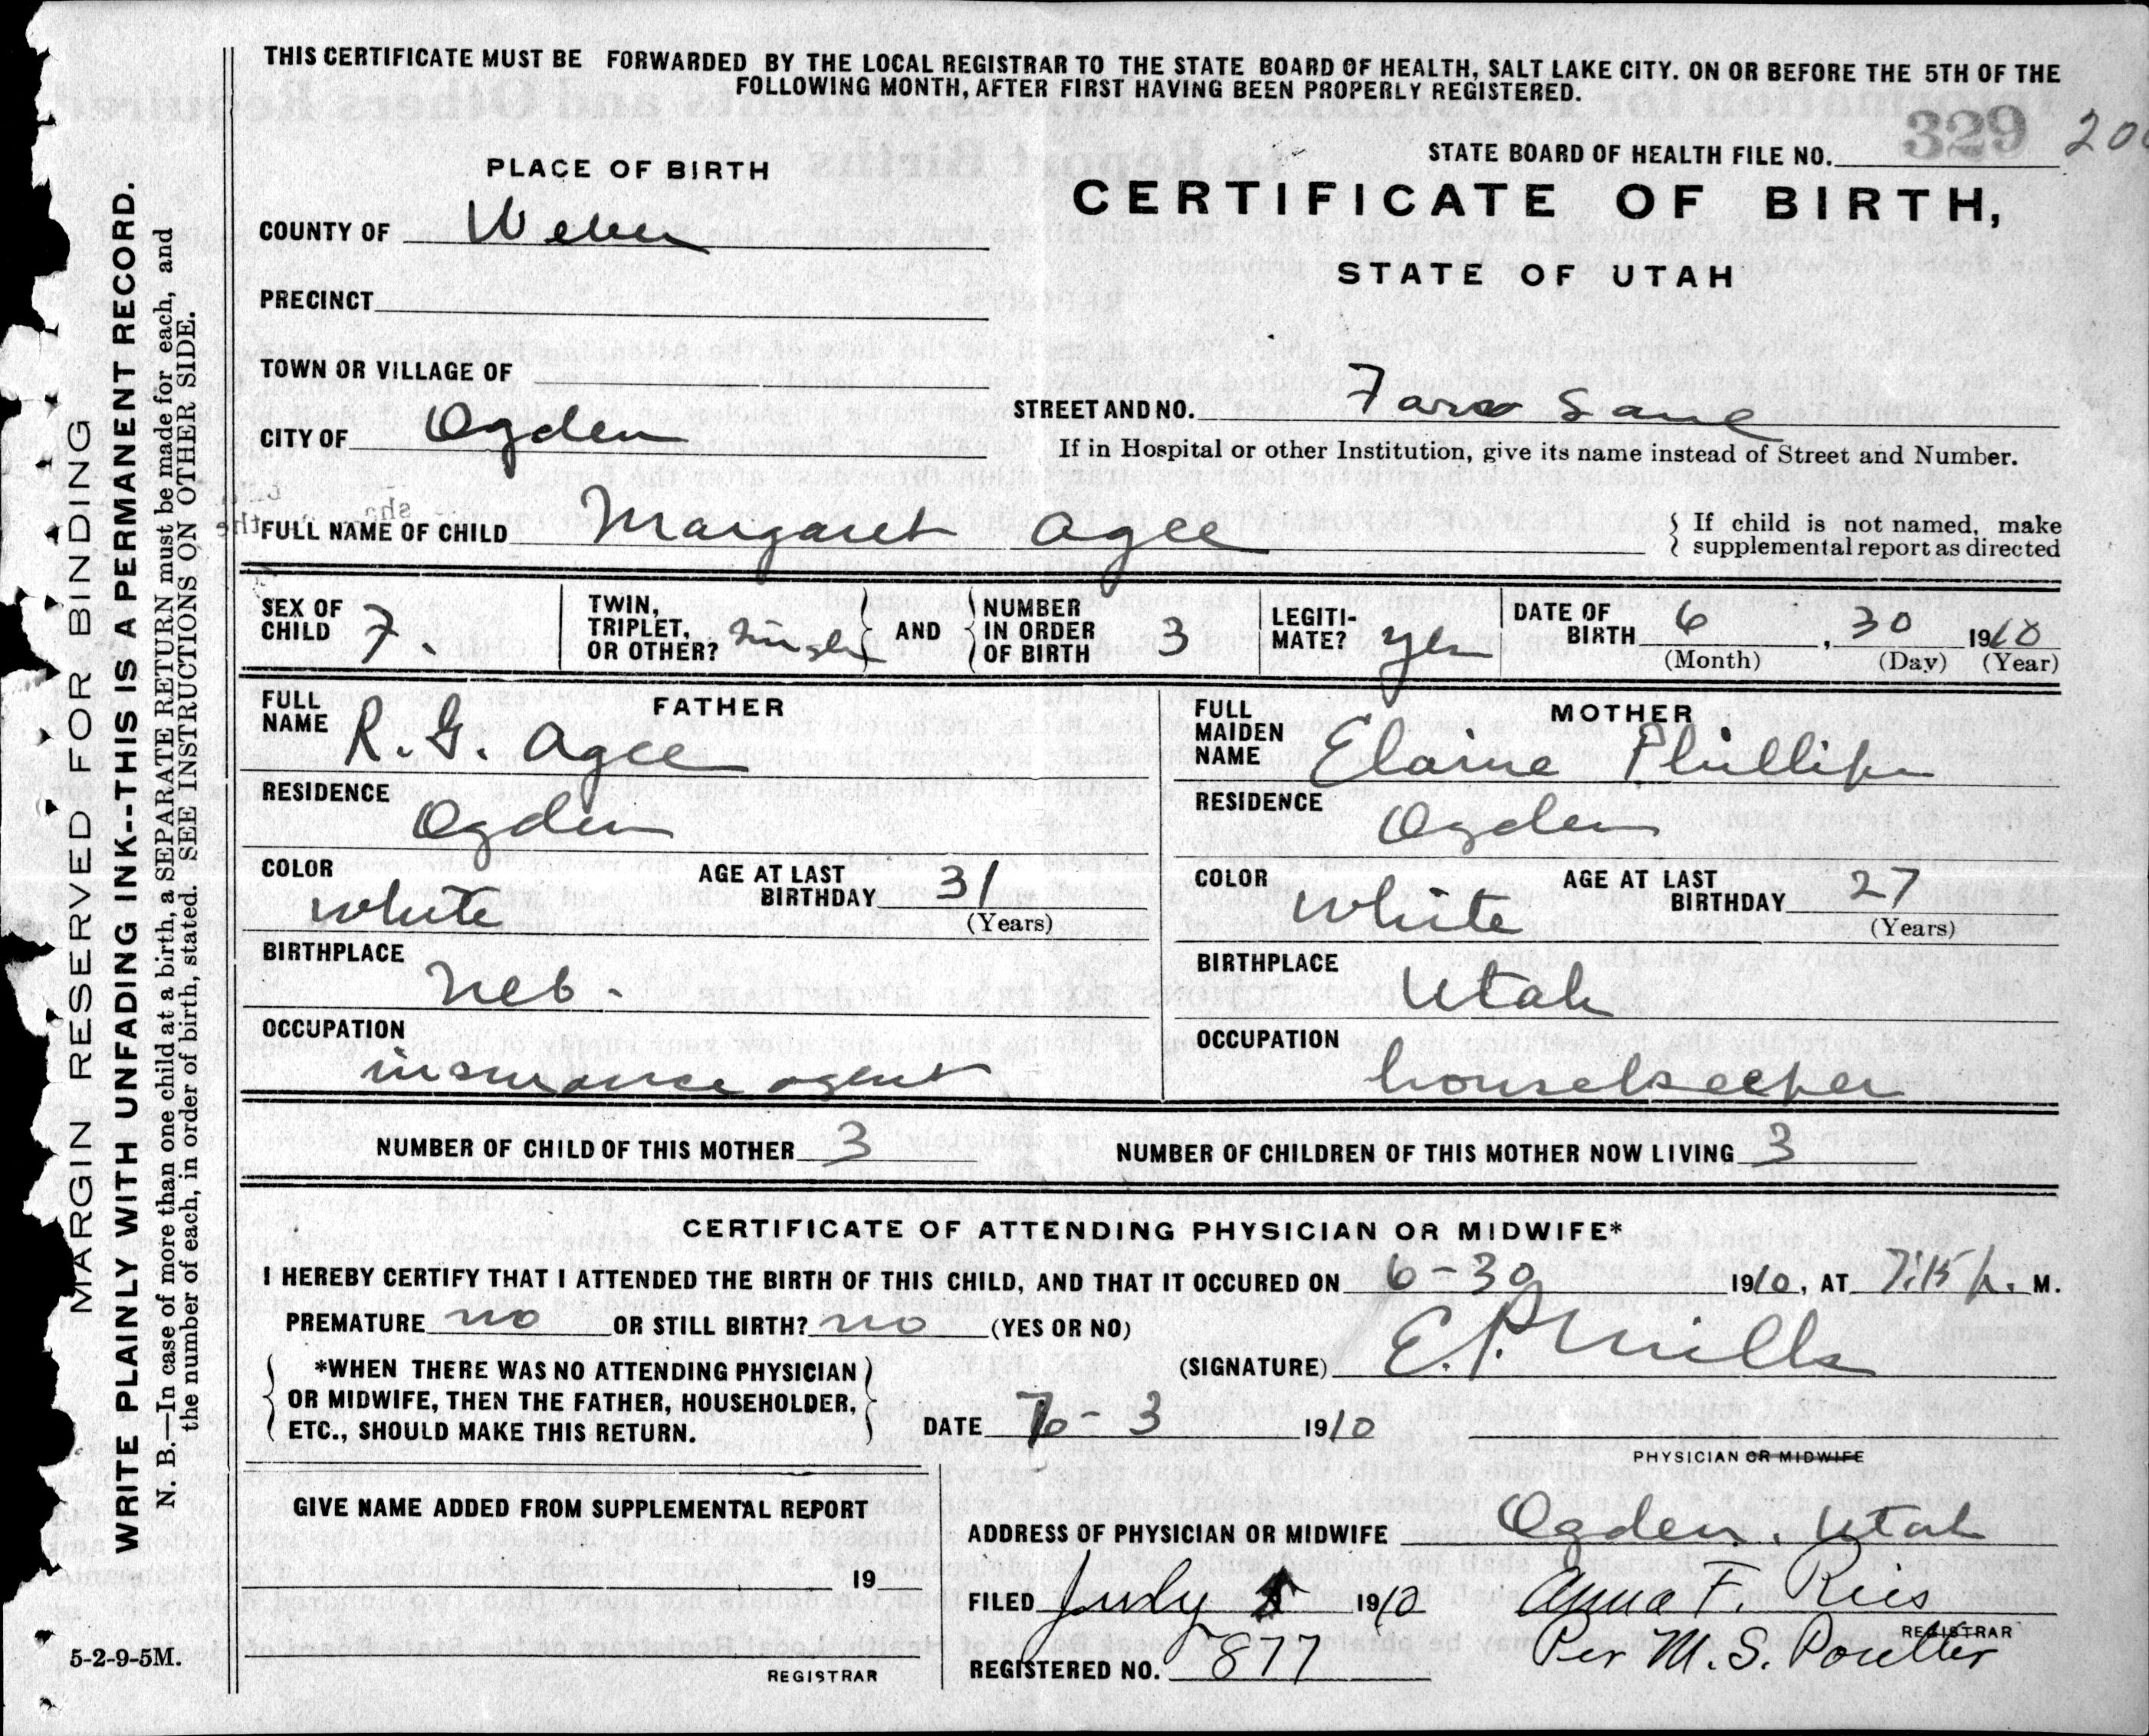 THIS CERTIFICATE MUST BE FORWARDED BY THE LOCAL REGISTRAR TO THE STATE BOARD OF HEALTH, SALT LAKE CITY. ON OR BEFORE THE 5TH OF THE
FOLLOWING MONTH, AFTER FIRST HAVING BEEN PROPERLY REGISTERED.
STATE BOARD OF HEALTH FILE NO. 329
PLACE OF BIRTH
CERTIFICATE OF BIRTH,
STATE OF UTAH
COUNTY OF Weber
PRECINCT
TOWN OR VILLAGE OF
CITY OF Ogden
STREET AND NO.
If in Hospital or other Institution, give its name instead of Street and Number.
FULL NAME OF CHILD Margaret Agee
{ If child is not named, make
supplemental report as directed
SEX OF CHILD F.
TWIN, TRIPLET, OR OTHER? Single } AND { NUMBER IN ORDER OF BIRTH 3
LEGITI-MATE? yes
DATE OF BIRTH 6, 30 1910
(Month) (Day) (Year)
FATHER
FULL NAME R. G. Agee
RESIDENCE Ogden
COLOR white AGE AT LAST BIRTHDAY 31 (Years)
BIRTHPLACE Neb.
OCCUPATION insurance agent
MOTHER
FULL MAIDEN NAME Elaine Phillips
RESIDENCE Ogden
COLOR White AGE AT LAST BIRTHDAY 27 (Years)
BIRTHPLACE Utah
OCCUPATION housekeeper
NUMBER OF CHILD OF THIS MOTHER 3 NUMBER OF CHILDREN OF THIS MOTHER NOW LIVING 3
CERTIFICATE OF ATTENDING PHYSICIAN OR MIDWIFE*
I HEREBY CERTIFY THAT I ATTENDED THE BIRTH OF THIS CHILD, AND THAT IT OCCURED ON 6-30 1910, AT 7:15 P. M.
PREMATURE no OR STILL BIRTH? no (YES OR NO)
(SIGNATURE) E. P. Mills
{ *WHEN THERE WAS NO ATTENDING PHYSICIAN
OR MIDWIFE, THEN THE FATHER, HOUSEHOLDER,
ETC., SHOULD MAKE THIS RETURN. }
DATE 7-3 1910
PHYSICIAN OR MIDWIFE
GIVE NAME ADDED FROM SUPPLEMENTAL REPORT
19
REGISTRAR
ADDRESS OF PHYSICIAN OR MIDWIFE Ogden, Utah
FILED July 1910 Anna F. Ries
REGISTRAR
REGISTERED NO. 877 Per M. S. Poulter
5-2-9-5M.
MARGIN RESERVED FOR BINDING
WRITE PLAINLY WITH UNFADING INK--THIS IS A PERMANENT RECORD.
N. B.—In case of more than one child at a birth, a SEPARATE RETURN must be made for each, and
the number of each, in order of birth, stated. SEE INSTRUCTIONS ON OTHER SIDE.